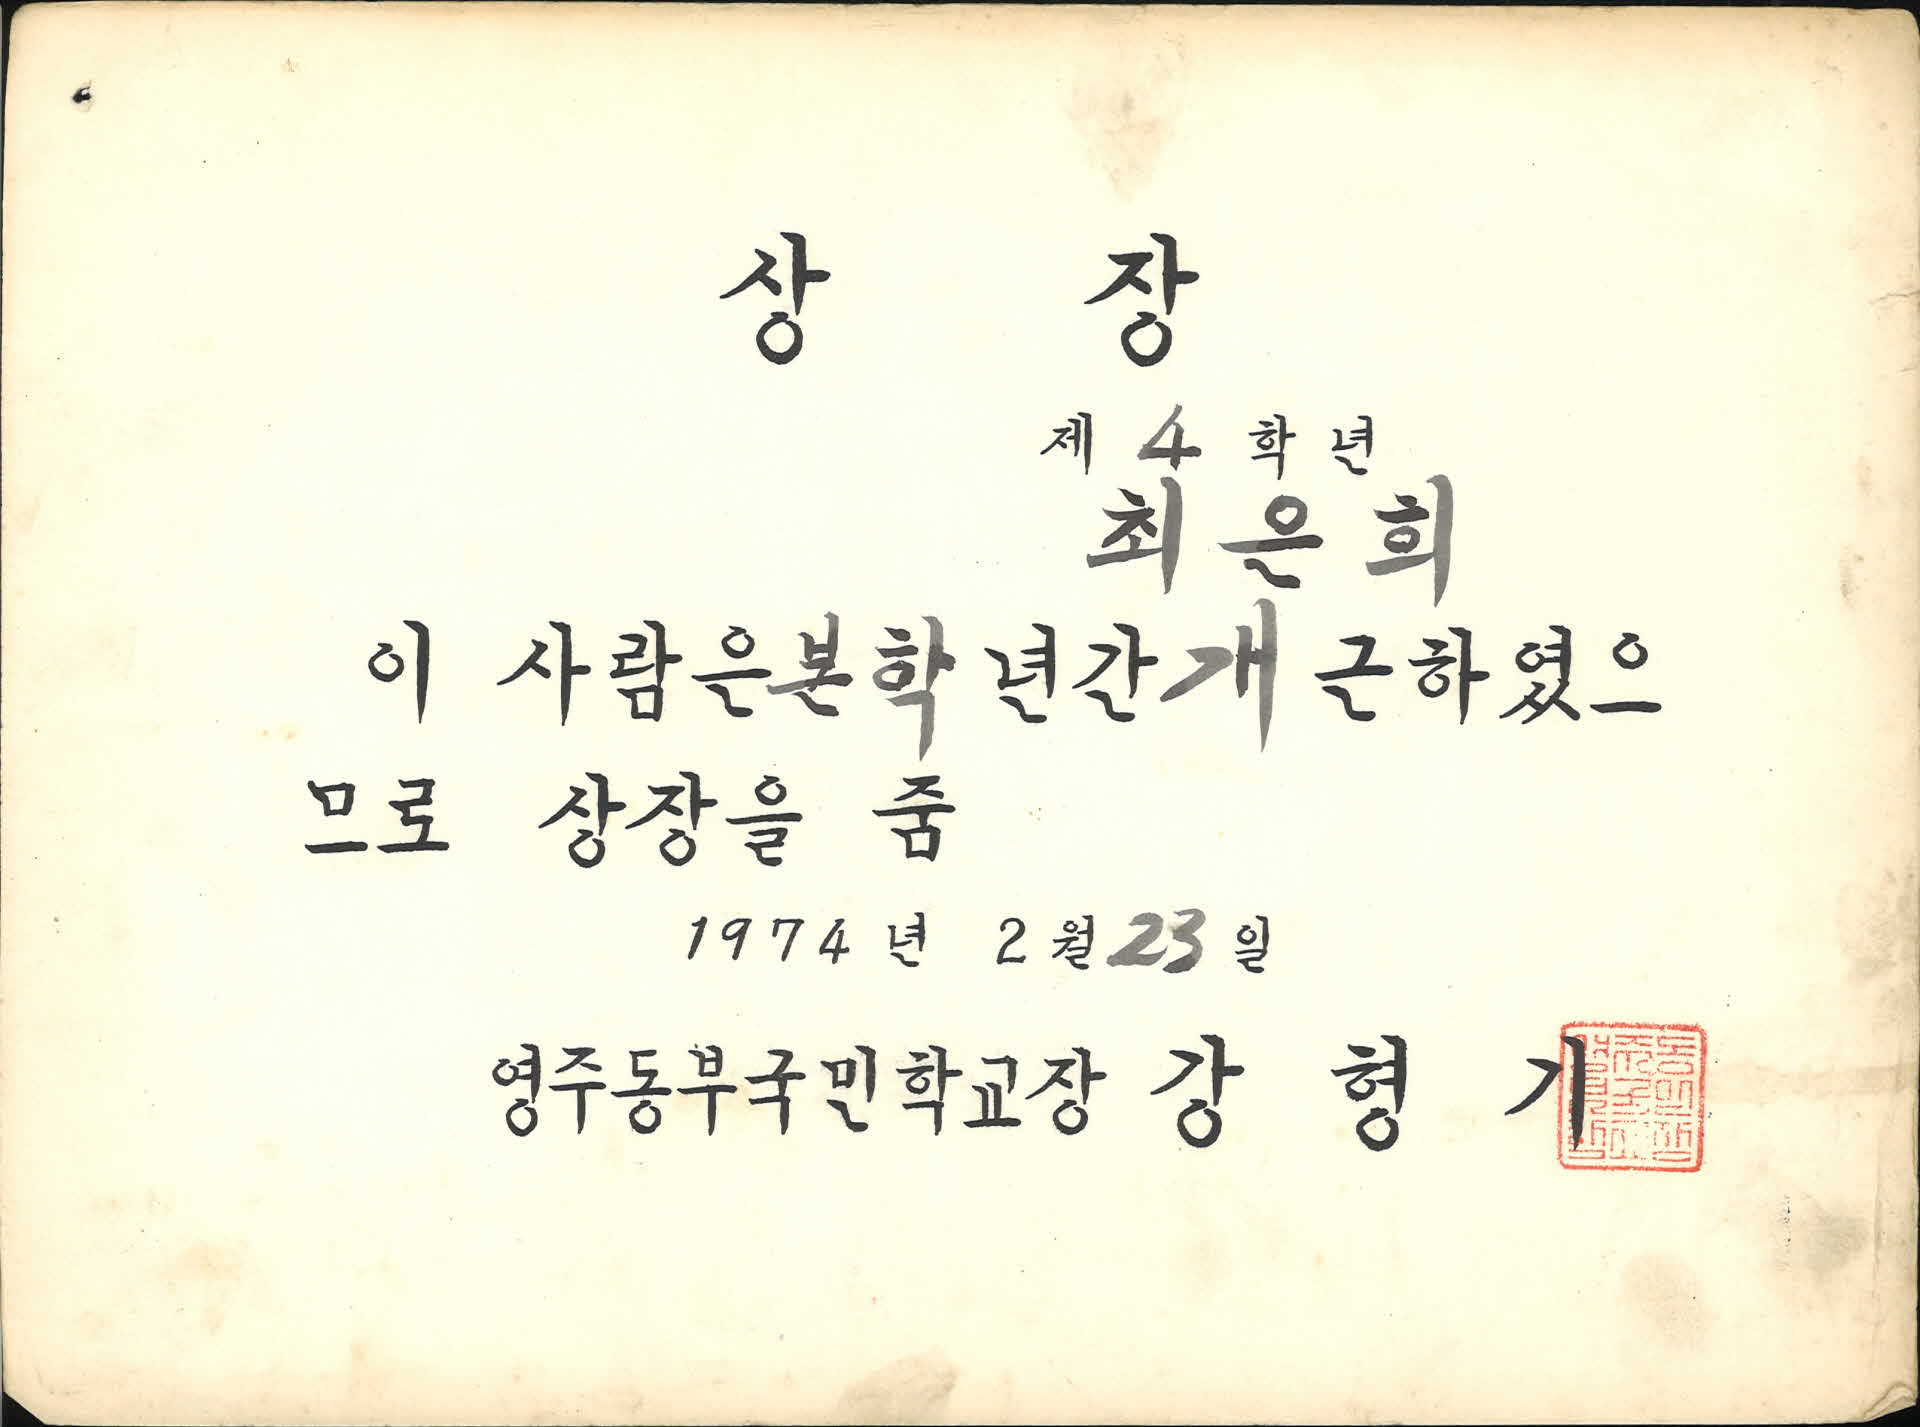 상 장
제 4 학년
최은희
이 사람은본학년간개근하였으
므로 상장을 줌
1974년 2월23일
영주동부국민학교장 강 형 기